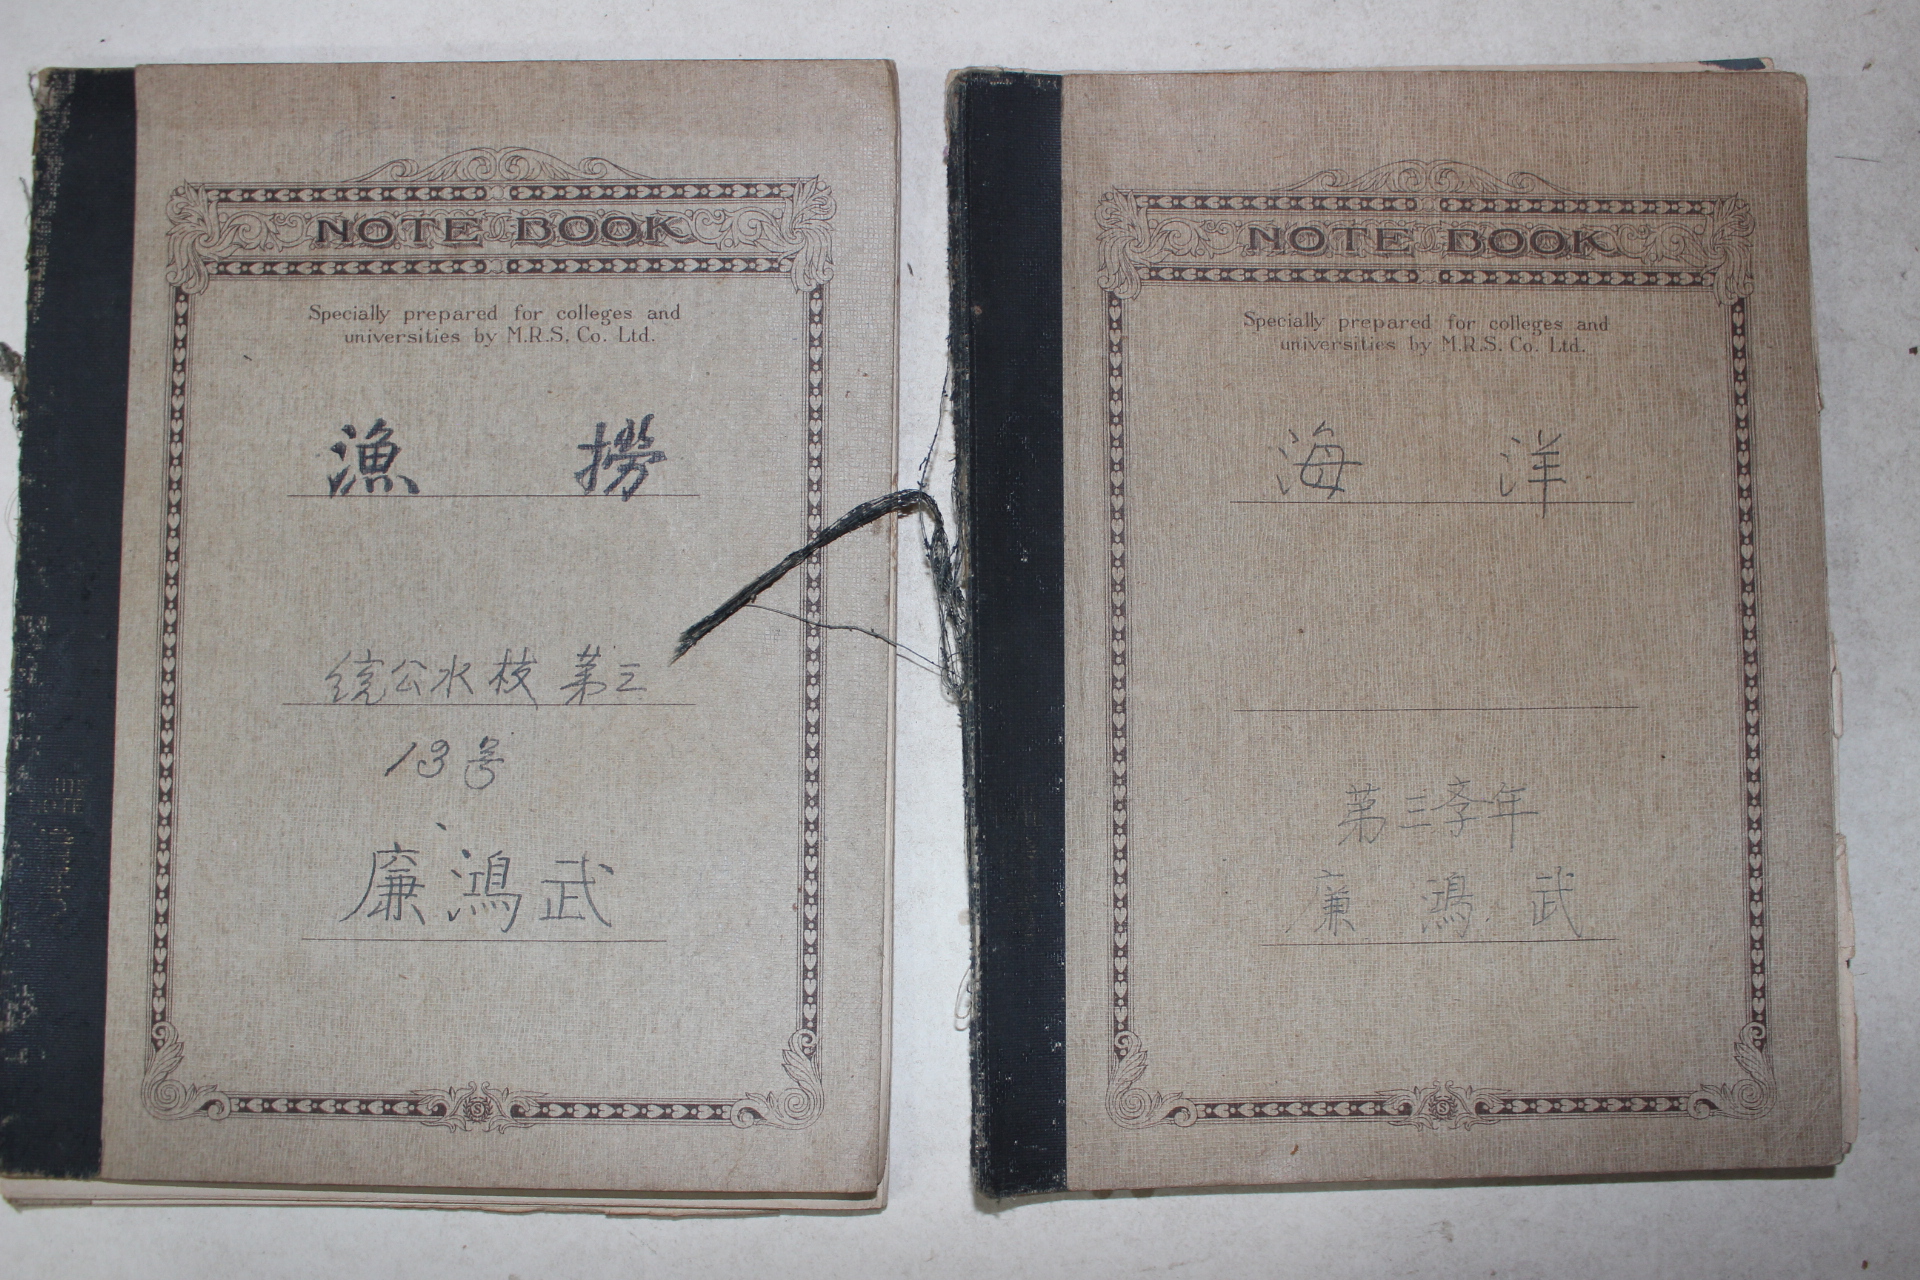 NOTE BOOK
Specially prepared for colleges and
universities by M.R.S. Co. Ltd.
漁 撈
统公水校 第三
13号
廉鴻武
NOTE BOOK
Specially prepared for colleges and
universities by M.R.S. Co. Ltd.
海 洋
第三季年
廉 鴻 武